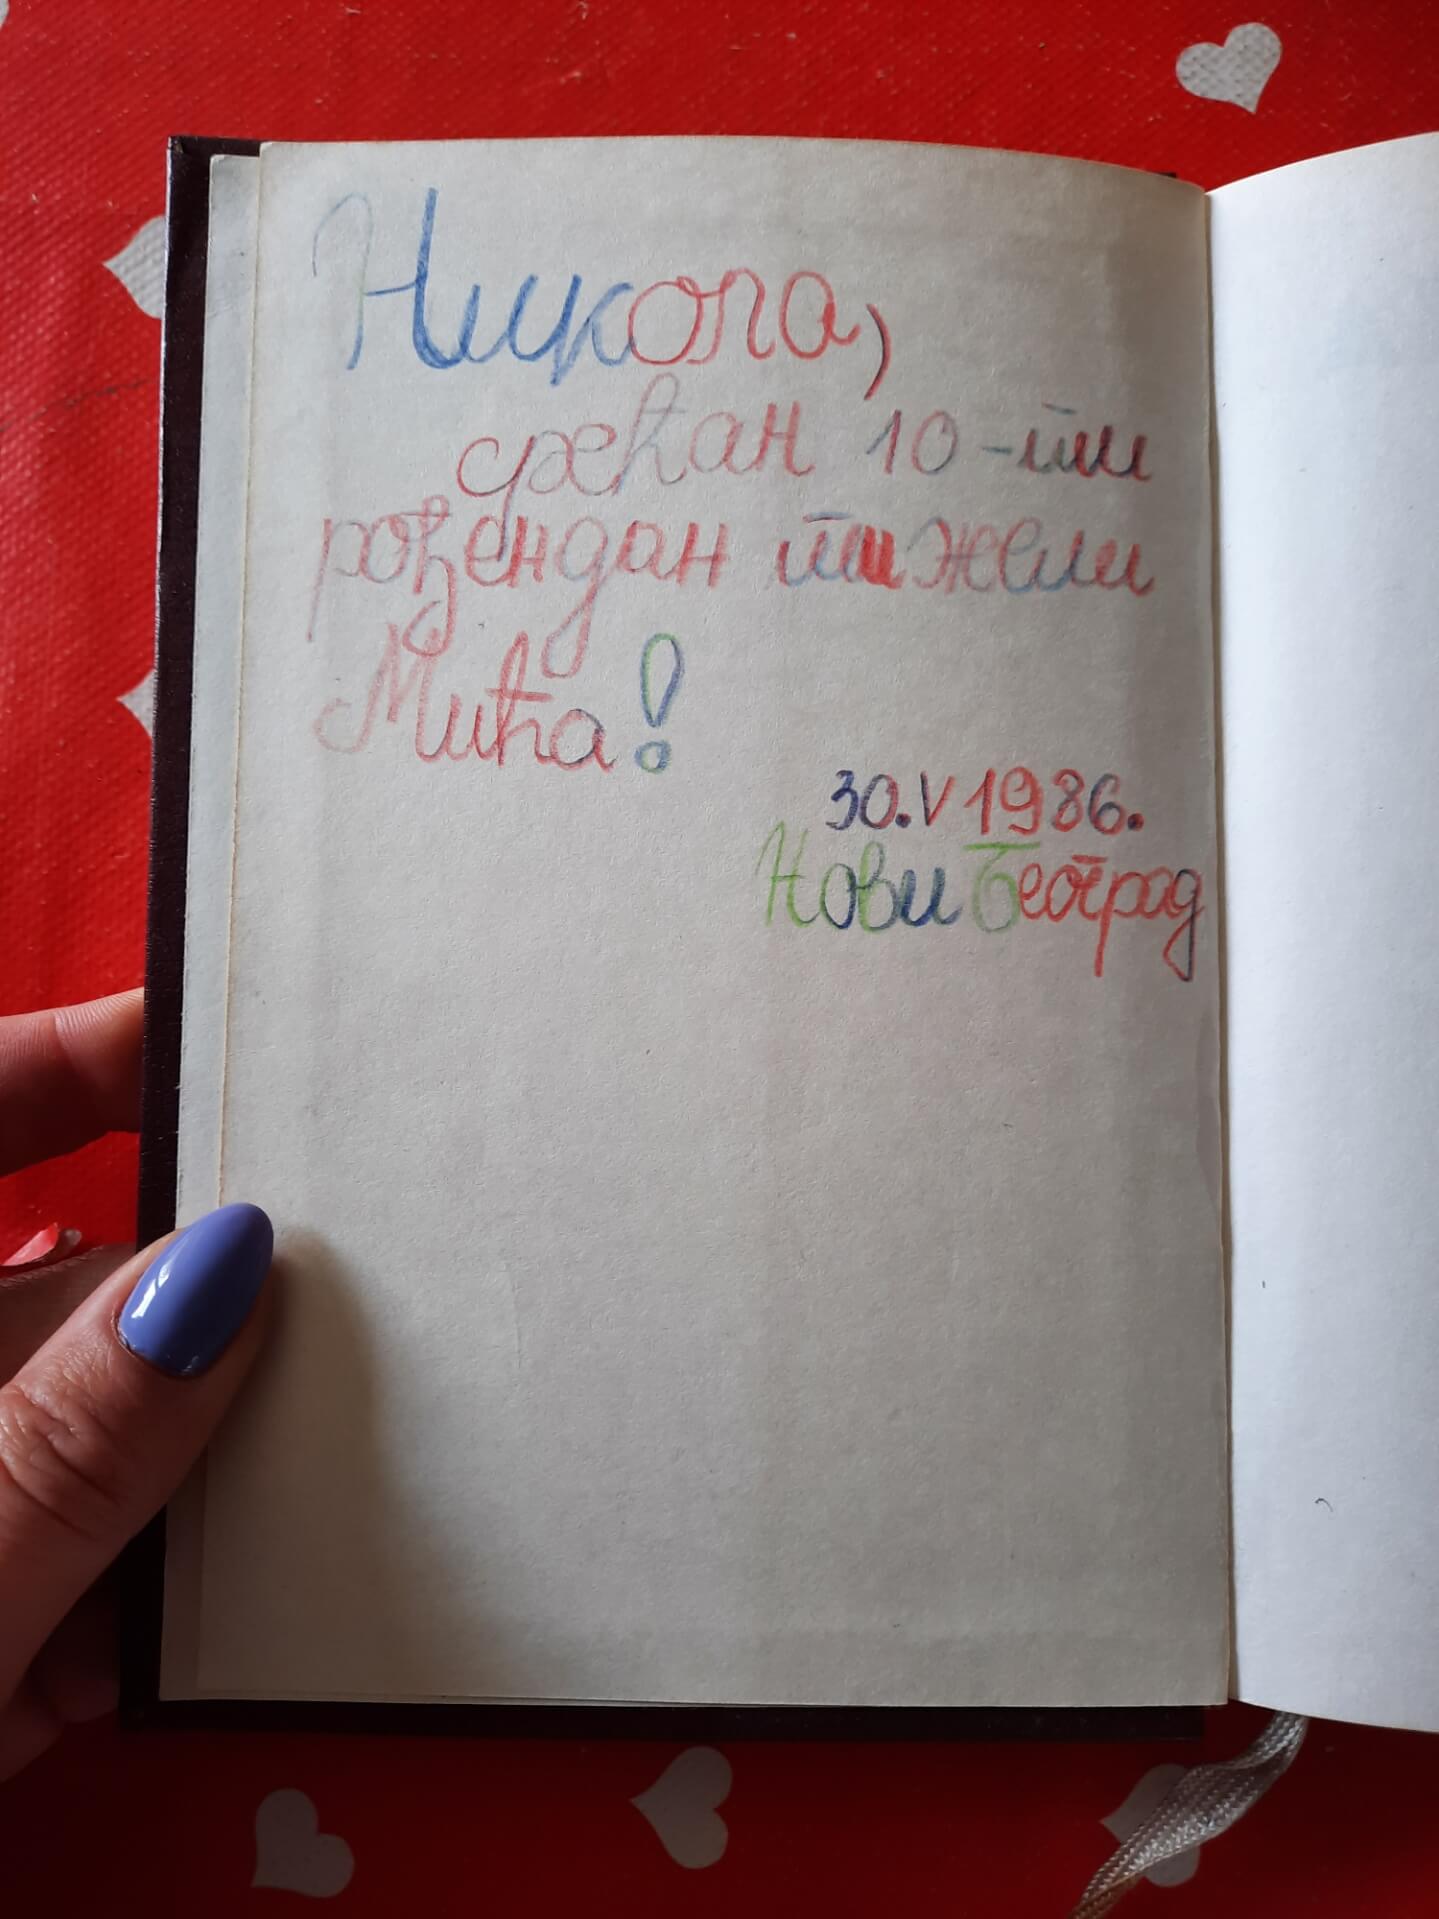 Никола,
срећан 10-ти
рођендан ти жели
Мића!
30.V 1986.
Нови Београд